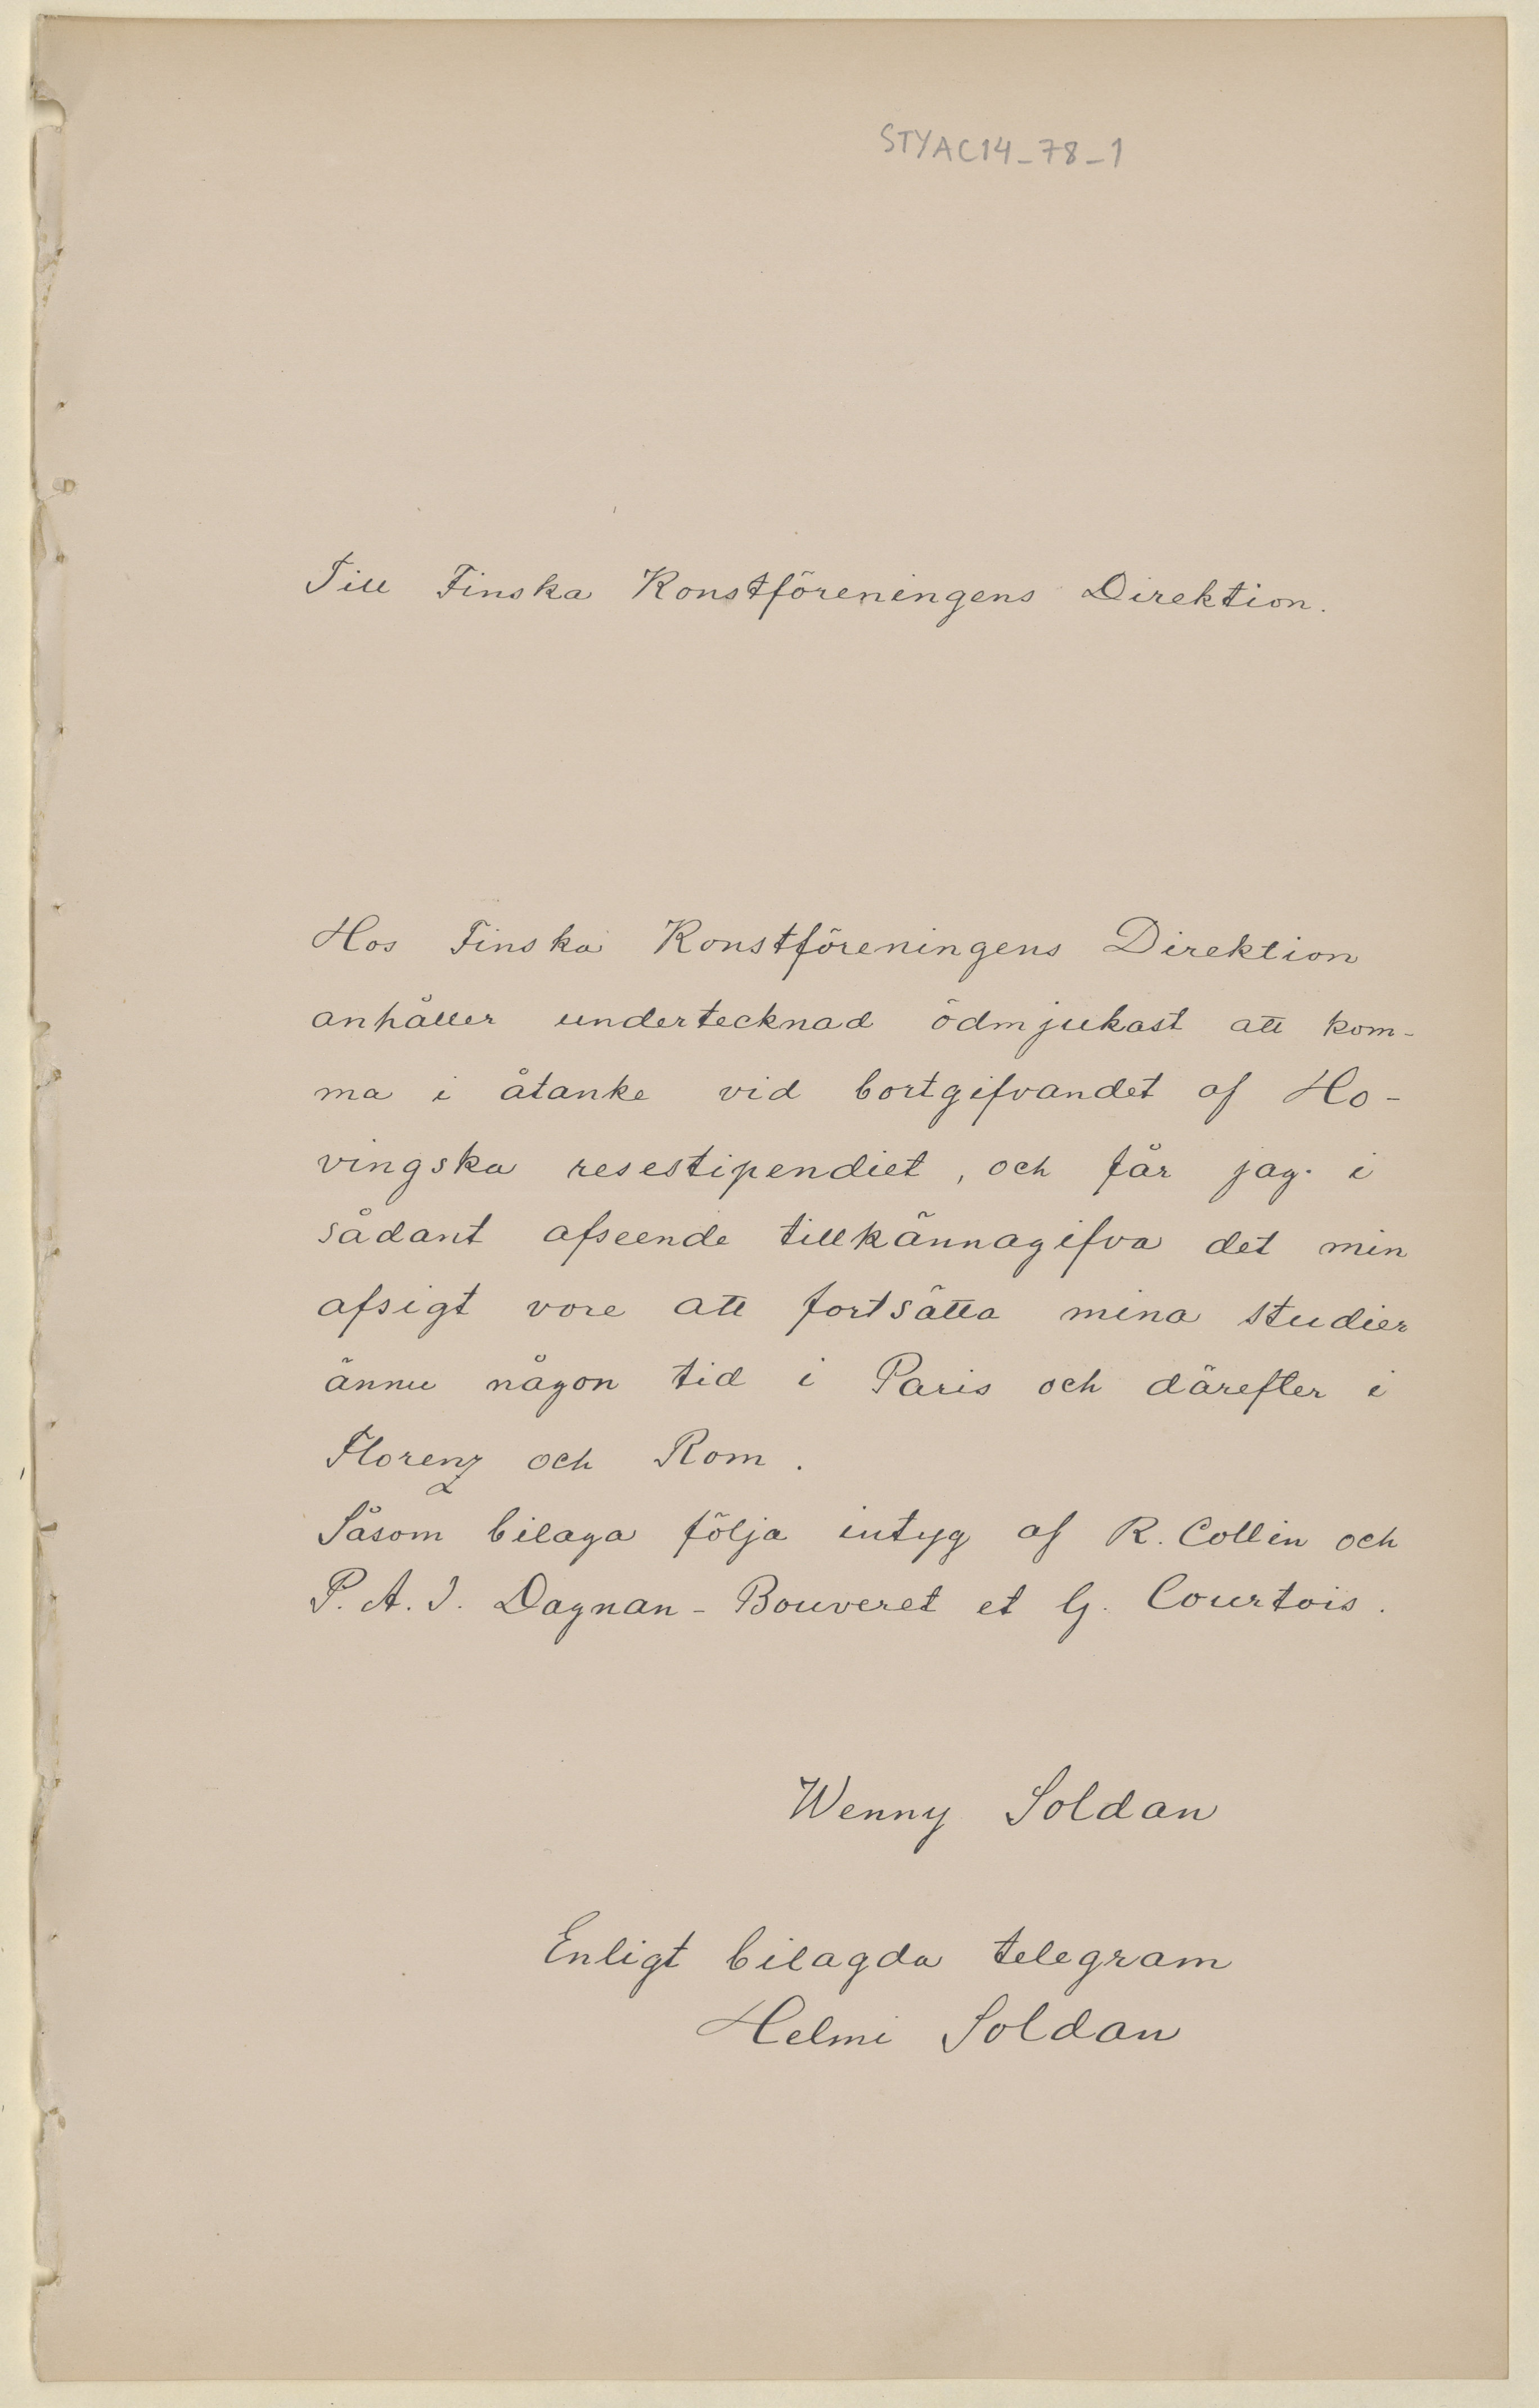 STYAC14_78_1
Till Finska Konstföreningens Direktion.
Hos Finska Konstföreningens Direktion
anhåller undertecknad ödmjukast att kom-
ma i åtanke vid bortgifvandet af Ho-
vingska resestipendiet, och får jag i
sådant afseende tillkännagifva det min
afsigt vore att fortsätta mina studier
ännu någon tid i Paris och därefter i
Florenz och Rom.
Såsom bilaga följa intyg af R. Collin och
P. A. J. Dagnan-Bouveret et G. Courtois.
Wenny Soldan
Enligt bilagda telegram
Helmi Soldan